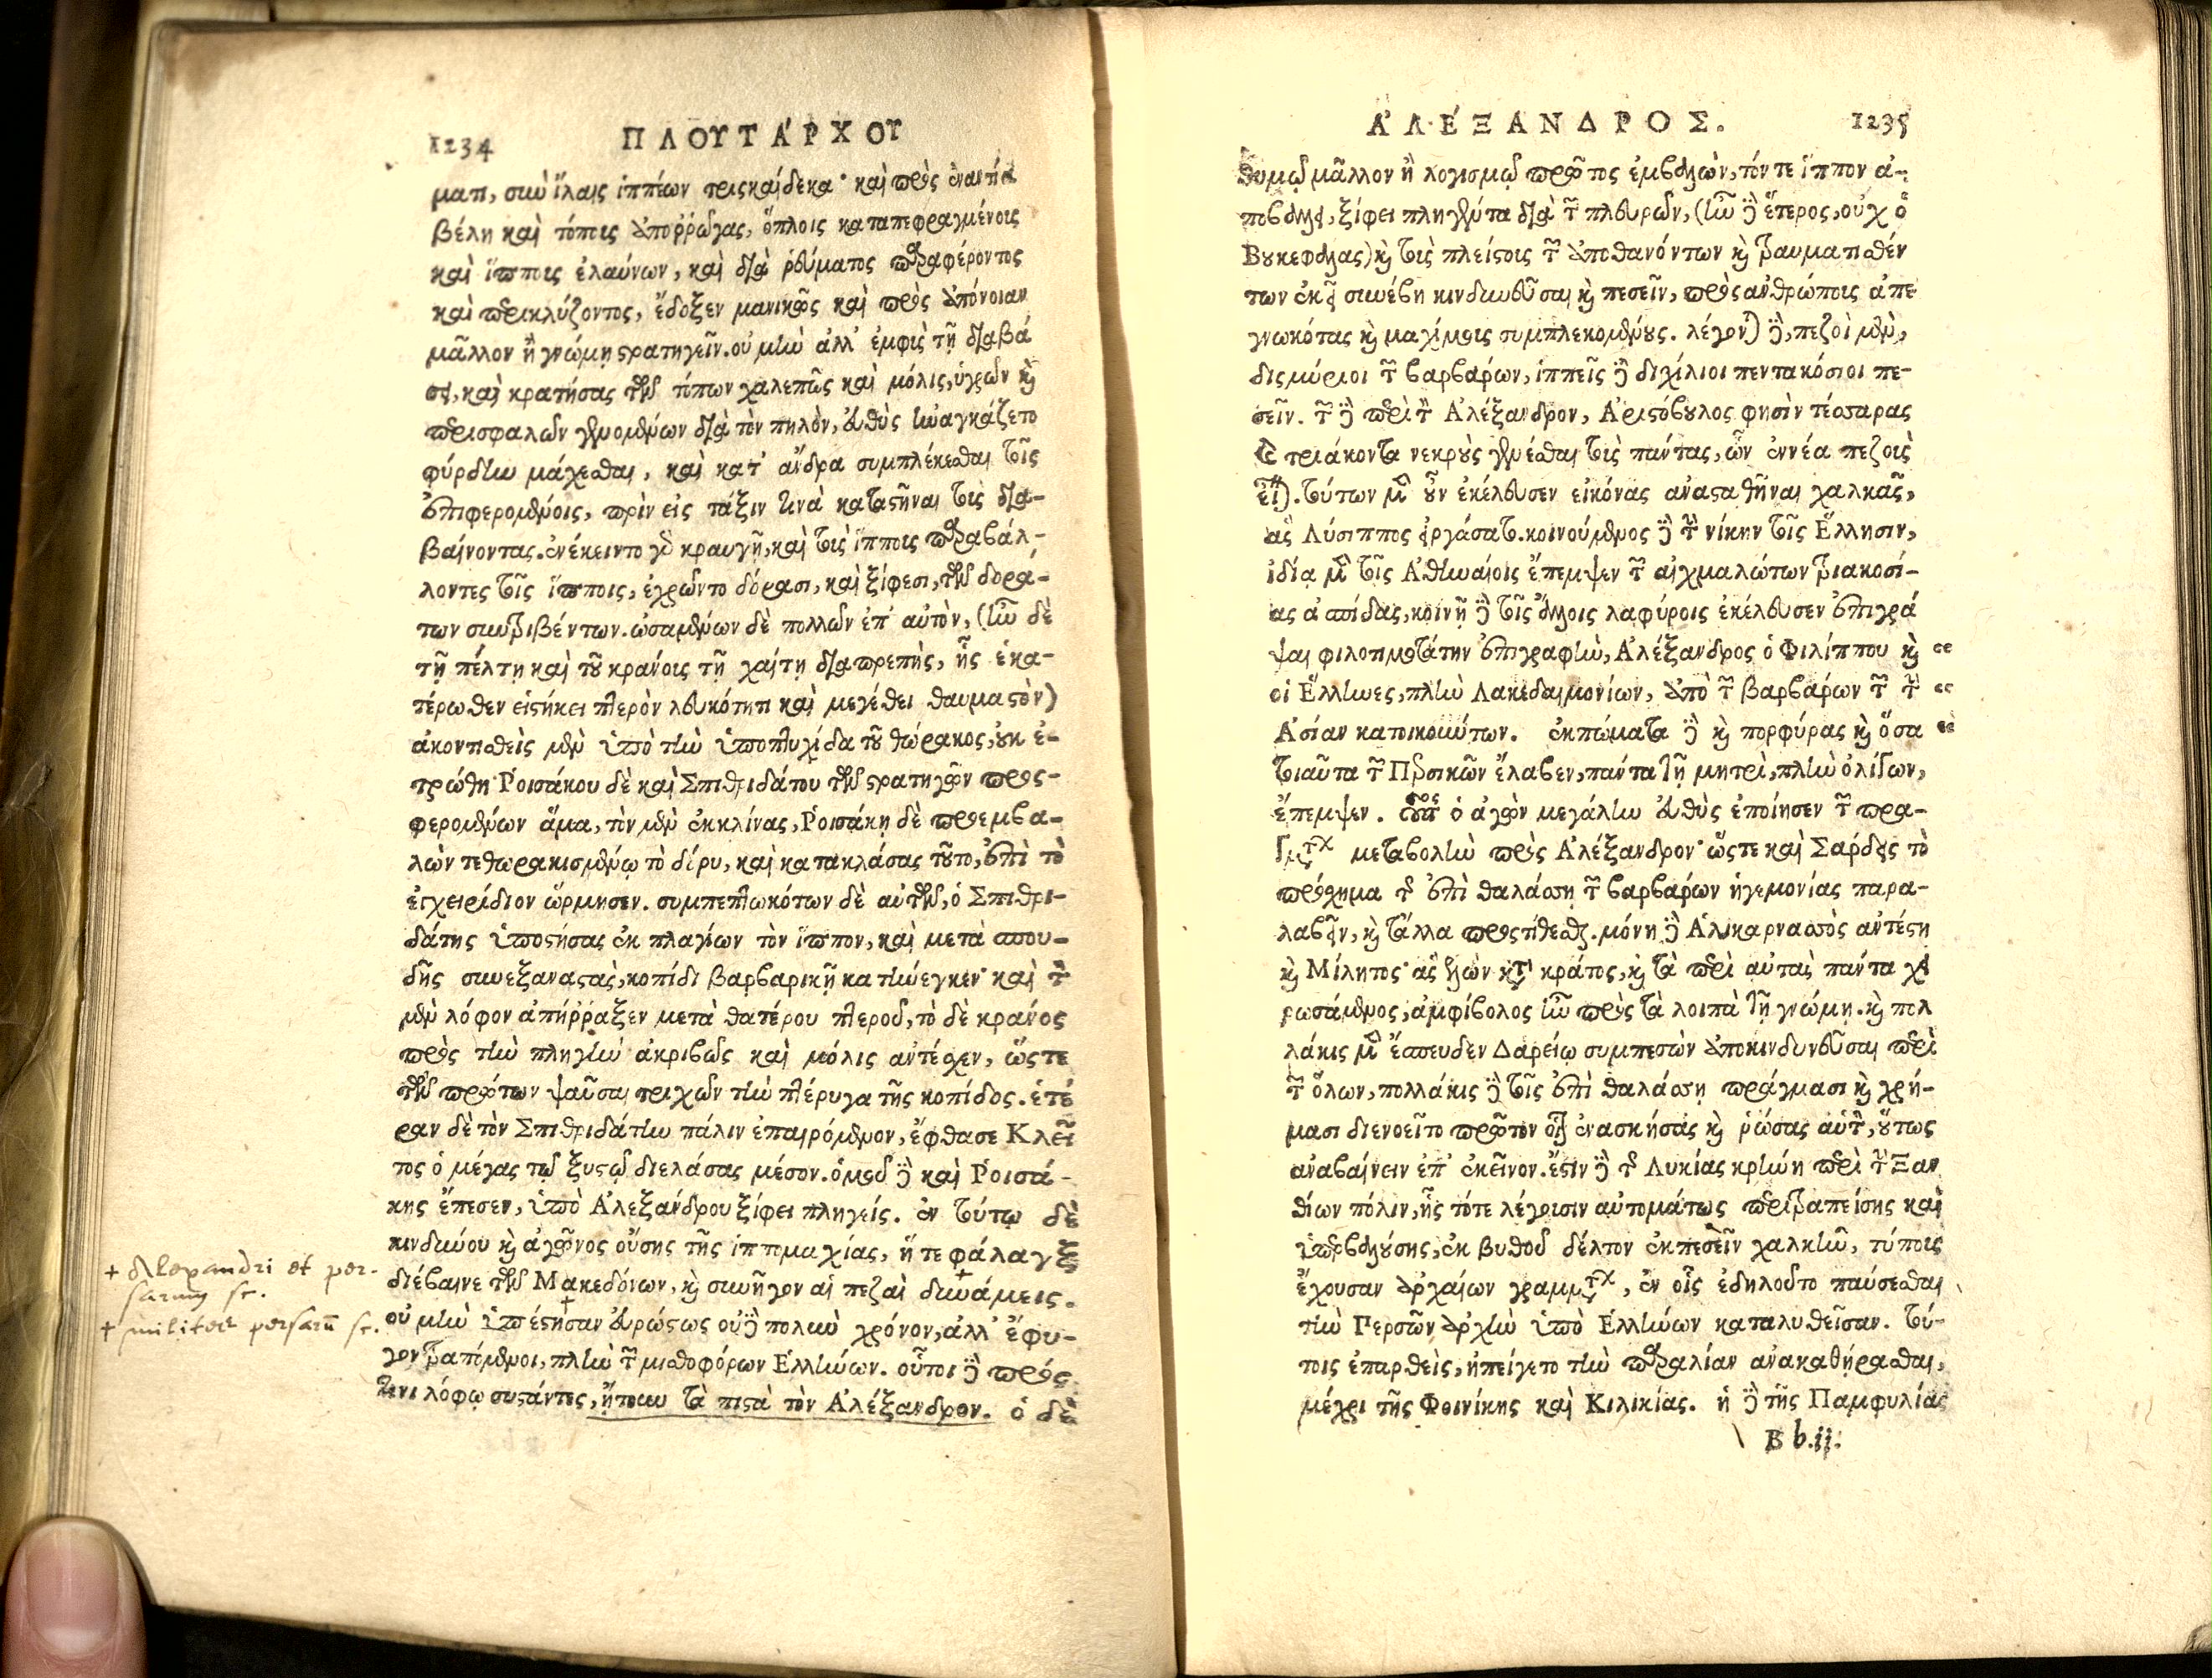 1234 ΠΛΟΥΤΆΡΧΟΥ
ματι, σὺν ἴλαις ἱππέων τριςκαίδεκα· καὶ πρὸς ἐναντία
βέλη καὶ τόπους ἀποῤῥώγας, ὅπλοις καταπεφραγμένοις
καὶ ἵπποις ἐλαύνων, καὶ διὰ ῥεύματος παραφέροντος
καὶ περικλύζοντος, ἔδοξεν μανικῶς καὶ πρὸς ἀπόνοιαν
μᾶλλον ἢ γνώμῃ στρατηγεῖν. οὐ μὴν ἀλλ' ἐμφὺς τῇ διαβά
σει, καὶ κρατήσας τῶν τόπων χαλεπῶς καὶ μόλις, ὑγρῶν καὶ
περισφαλῶν γενομένων διὰ τὸν πηλὸν, εὐθὺς ἠναγκάζετο
φύρδην μάχεσθαι, καὶ κατ' ἄνδρα συμπλέκεσθαι τοῖς
ἐπιφερομένοις, πρὶν εἰς τάξιν τινὰ καταστῆναι τοὺς δια-
βαίνοντας. ἐνέκειντο γὰρ κραυγῇ, καὶ τοὺς ἵππους παραβάλ-
λοντες τοῖς ἵπποις, ἐχρῶντο δόρασι, καὶ ξίφεσι, τῶν δορά-
των συντριβέντων. ὠσαμένων δὲ πολλῶν ἐπ' αὐτὸν, (ἦν δὲ
τῇ πέλτῃ καὶ τοῦ κράνους τῇ χαίτῃ διαπρεπὴς, ἧς ἑκα-
τέρωθεν εἱστήκει πτερὸν λευκότητι καὶ μεγέθει θαυμαστὸν)
ἀκοντισθεὶς μὲν ὑπὸ τὴν ὑποπτυχίδα τοῦ θώρακος, οὐκ ἐ-
τρώθη· Ῥοισάκου δὲ καὶ Σπιθριδάτου τῶν στρατηγῶν προς-
φερομένων ἅμα, τὸν μὲν ἐκκλίνας, Ῥοισάκῃ δὲ προεμβα-
λὼν τεθωρακισμένῳ τὸ δόρυ, καὶ κατακλάσας τοῦτο, ἐπὶ τὸ
ἐγχειρίδιον ὥρμησεν. συμπεπτωκότων δὲ αὐτῶν, ὁ Σπιθρι-
δάτης ὑποστήσας ἐκ πλαγίων τὸν ἵππον, καὶ μετὰ σπου-
δῆς συνεξαναστὰς, κοπίδι βαρβαρικῇ κατήνεγκεν· καὶ τὸν
μὲν λόφον ἀπήῤῥαξεν μετὰ θατέρου πτεροῦ, τὸ δὲ κράνος
πρὸς τὴν πληγὴν ἀκριβῶς καὶ μόλις ἀντέσχεν, ὥςτε
τῶν πρώτων ψαῦσαι τριχῶν τὴν πτέρυγα τῆς κοπίδος. ἑτέ
ραν δὲ τὸν Σπιθριδάτην πάλιν ἐπαιρόμενον, ἔφθασε Κλεῖ
τος ὁ μέγας τῷ ξυστῷ διελάσας μέσον. ὁμοῦ δὲ καὶ Ῥοισά-
κης ἔπεσεν, ὑπὸ Ἀλεξάνδρου ξίφει πληγείς. ἐν τούτῳ δὲ
κινδύνου καὶ ἀγῶνος οὔσης τῆς ἱππομαχίας, ἥ τε φάλαγξ
διέβαινε τῶν Μακεδόνων, καὶ συνῆγον αἱ πεζαὶ δυνάμεις.
οὐ μὴν ὑπέστησαν εὐρώστως οὐδὲ πολὺν χρόνον, ἀλλ' ἔφυ-
γον τραπόμενοι, πλὴν τῶν μισθοφόρων Ἑλλήνων. οὗτοι δὲ πρός
τινι λόφῳ συστάντες, ᾔτουν τὰ πιστὰ τὸν Ἀλέξανδρον. ὁ δὲ
+ Alexandri et per-
sarum sc.
+ milites persarū sc.
ἈΛΈΞΑΝΔΡΟΣ. 1235
θυμῷ μᾶλλον ἢ λογισμῷ πρῶτος ἐμβαλὼν, τόν τε ἵππον ἀ-
ποβάλλει, ξίφει πληγέντα διὰ τῶν πλευρῶν, (ἦν δὲ ἕτερος, οὐχ ὁ
Βουκεφάλας) καὶ τοὺς πλείστους τῶν ἀποθανόντων καὶ τραυματισθέν
των ἐκεῖ συνέβη κινδυνεῦσαι καὶ πεσεῖν, πρὸς ἀνθρώπους ἀπε
γνωκότας καὶ μαχίμους συμπλεκομένους. λέγονται δὲ, πεζοὶ μὲν,
δισμύριοι τῶν βαρβάρων, ἱππεῖς δὲ διχίλιοι πεντακόσιοι πε-
σεῖν. τῶν δὲ περὶ τὸν Ἀλέξανδρον, Ἀριστόβουλος φησὶν τέσσαρας
καὶ τριάκοντα νεκροὺς γενέσθαι τοὺς πάντας, ὧν ἐννέα πεζοὺς
εἶναι. τούτων μὲν οὖν ἐκέλευσεν εἰκόνας ἀνασταθῆναι χαλκᾶς,
ἃς Λύσιππος εἰργάσατο. κοινούμενος δὲ τὴν νίκην τοῖς Ἕλλησιν,
ἰδίᾳ μὲν τοῖς Ἀθηναίοις ἔπεμψεν τῶν αἰχμαλώτων τριακοσί-
ας ἀσπίδας, κοινῇ δὲ τοῖς ἄλλοις λαφύροις ἐκέλευσεν ἐπιγρά
ψαι φιλοτιμοτάτην ἐπιγραφὴν, Ἀλέξανδρος ὁ Φιλίππου καὶ “
οἱ Ἕλληνες, πλὴν Λακεδαιμονίων, ἀπὸ τῶν βαρβάρων τῶν τὴν “
Ἀσίαν κατοικούντων. ἐκπώματα δὲ καὶ πορφύρας καὶ ὅσα “
τοιαῦτα τῶν Περσικῶν ἔλαβεν, πάντα τῇ μητρὶ, πλὴν ὀλίγων,
ἔπεμψεν. οὗτος ὁ ἀγὼν μεγάλην εὐθὺς ἐποίησεν τῶν πρα-
γμάτων μεταβολὴν πρὸς Ἀλέξανδρον· ὥςτε καὶ Σάρδεις τὸ
πρόσχημα τῆς ἐπὶ θαλάσσῃ τῶν βαρβάρων ἡγεμονίας παρα-
λαβεῖν, καὶ τἄλλα προςτίθεσθαι. μόνη δὲ Ἁλικαρνασσὸς ἀντέστη
καὶ Μίλητος· ἃς ἑλὼν κατὰ κράτος, καὶ τὰ περὶ αὐτὰς πάντα χει
ρωσάμενος, ἀμφίβολος ἦν πρὸς τὰ λοιπὰ τῇ γνώμῃ. καὶ πολ
λάκις μὲν ἔσπευδεν Δαρείῳ συμπεσὼν ἀποκινδυνεῦσαι περὶ
τῶν ὅλων, πολλάκις δὲ τοῖς ἐπὶ θαλάσσῃ πράγμασι καὶ χρή-
μασι διενοεῖτο πρῶτον οἷον ἐνασκήσας καὶ ῥώσας αὑτὸν, οὕτως
ἀναβαίνειν ἐπ' ἐκεῖνον. ἔστιν δὲ τῆς Λυκίας κρήνη περὶ τὴν Ξαν
θίων πόλιν, ἧς τότε λέγουσιν αὐτομάτως περιτραπείσης καὶ
ὑπερβαλούσης, ἐκ βυθοῦ δέλτον ἐκπεσεῖν χαλκῆν, τύπους
ἔχουσαν ἀρχαίων γραμμάτων, ἐν οἷς ἐδηλοῦτο παύσεσθαι
τὴν Περσῶν ἀρχὴν ὑπὸ Ἑλλήνων καταλυθεῖσαν. τού-
τοις ἐπαρθεὶς, ἠπείγετο τὴν παραλίαν ἀνακαθήρασθαι,
μέχρι τῆς Φοινίκης καὶ Κιλικίας. ἡ δὲ τῆς Παμφυλίας
B b.ij.